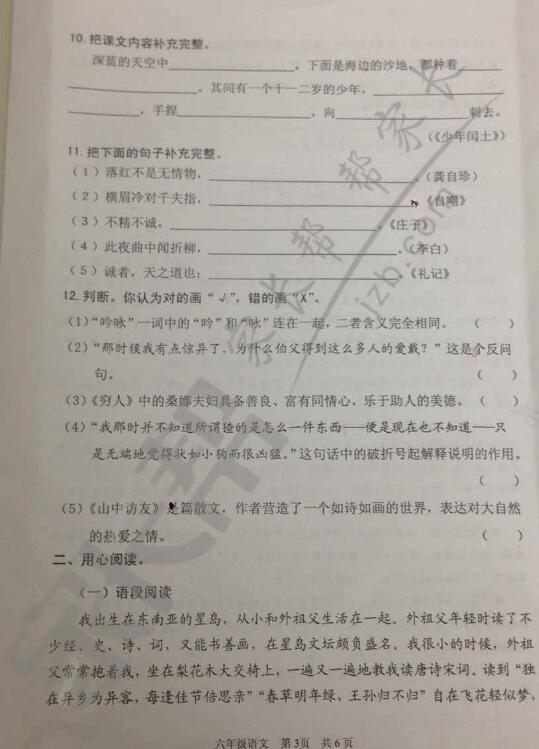 10. 把课文内容补充完整。
深蓝的天空中____________，下面是海边的沙地，都种着_____
____________，其间有一个十一二岁的少年，____________
_______，手捏____________，向____________刺去。
（《少年闰土》）
11. 把下面的句子补充完整。
（1）落红不是无情物，____________。（龚自珍）
（2）横眉冷对千夫指，____________。《自嘲》
（3）不精不诚，____________。《庄子》
（4）此夜曲中闻折柳，____________。（李白）
（5）诚者，天之道也；____________。《礼记》
12. 判断。你认为对的画“√”，错的画“X”。
（1）“吟咏”一词中的“吟”和“咏”连在一起，二者含义完全相同。（ ）
（2）“那时候我有点惊异了，为什么伯父得到这么多人的爱戴？”这是个反问
句。（ ）
（3）《穷人》中的桑娜夫妇具备善良、富有同情心，乐于助人的美德。（ ）
（4）“我那时并不知道所谓猹的是怎么一件东西——便是现在也不知道——只
是无端地觉得状如小狗而很凶猛。”这句话中的破折号起解释说明的作用。
（ ）
（5）《山中访友》是篇散文，作者营造了一个如诗如画的世界，表达对大自然
的热爱之情。（ ）
二、用心阅读。
（一）语段阅读
我出生在东南亚的星岛，从小和外祖父生活在一起。外祖父年轻时读了不
少经、史、诗、词，又能书善画，在星岛文坛颇负盛名。我很小的时候，外祖
父常常抱着我，坐在梨花木大交椅上，一遍又一遍地教我读唐诗宋词。读到“独
在异乡为异客，每逢佳节倍思亲”“春草明年绿，王孙归不归”“自在飞花轻似梦，
六年级语文 第3页 共6页
家长帮
jzb.com
家长帮